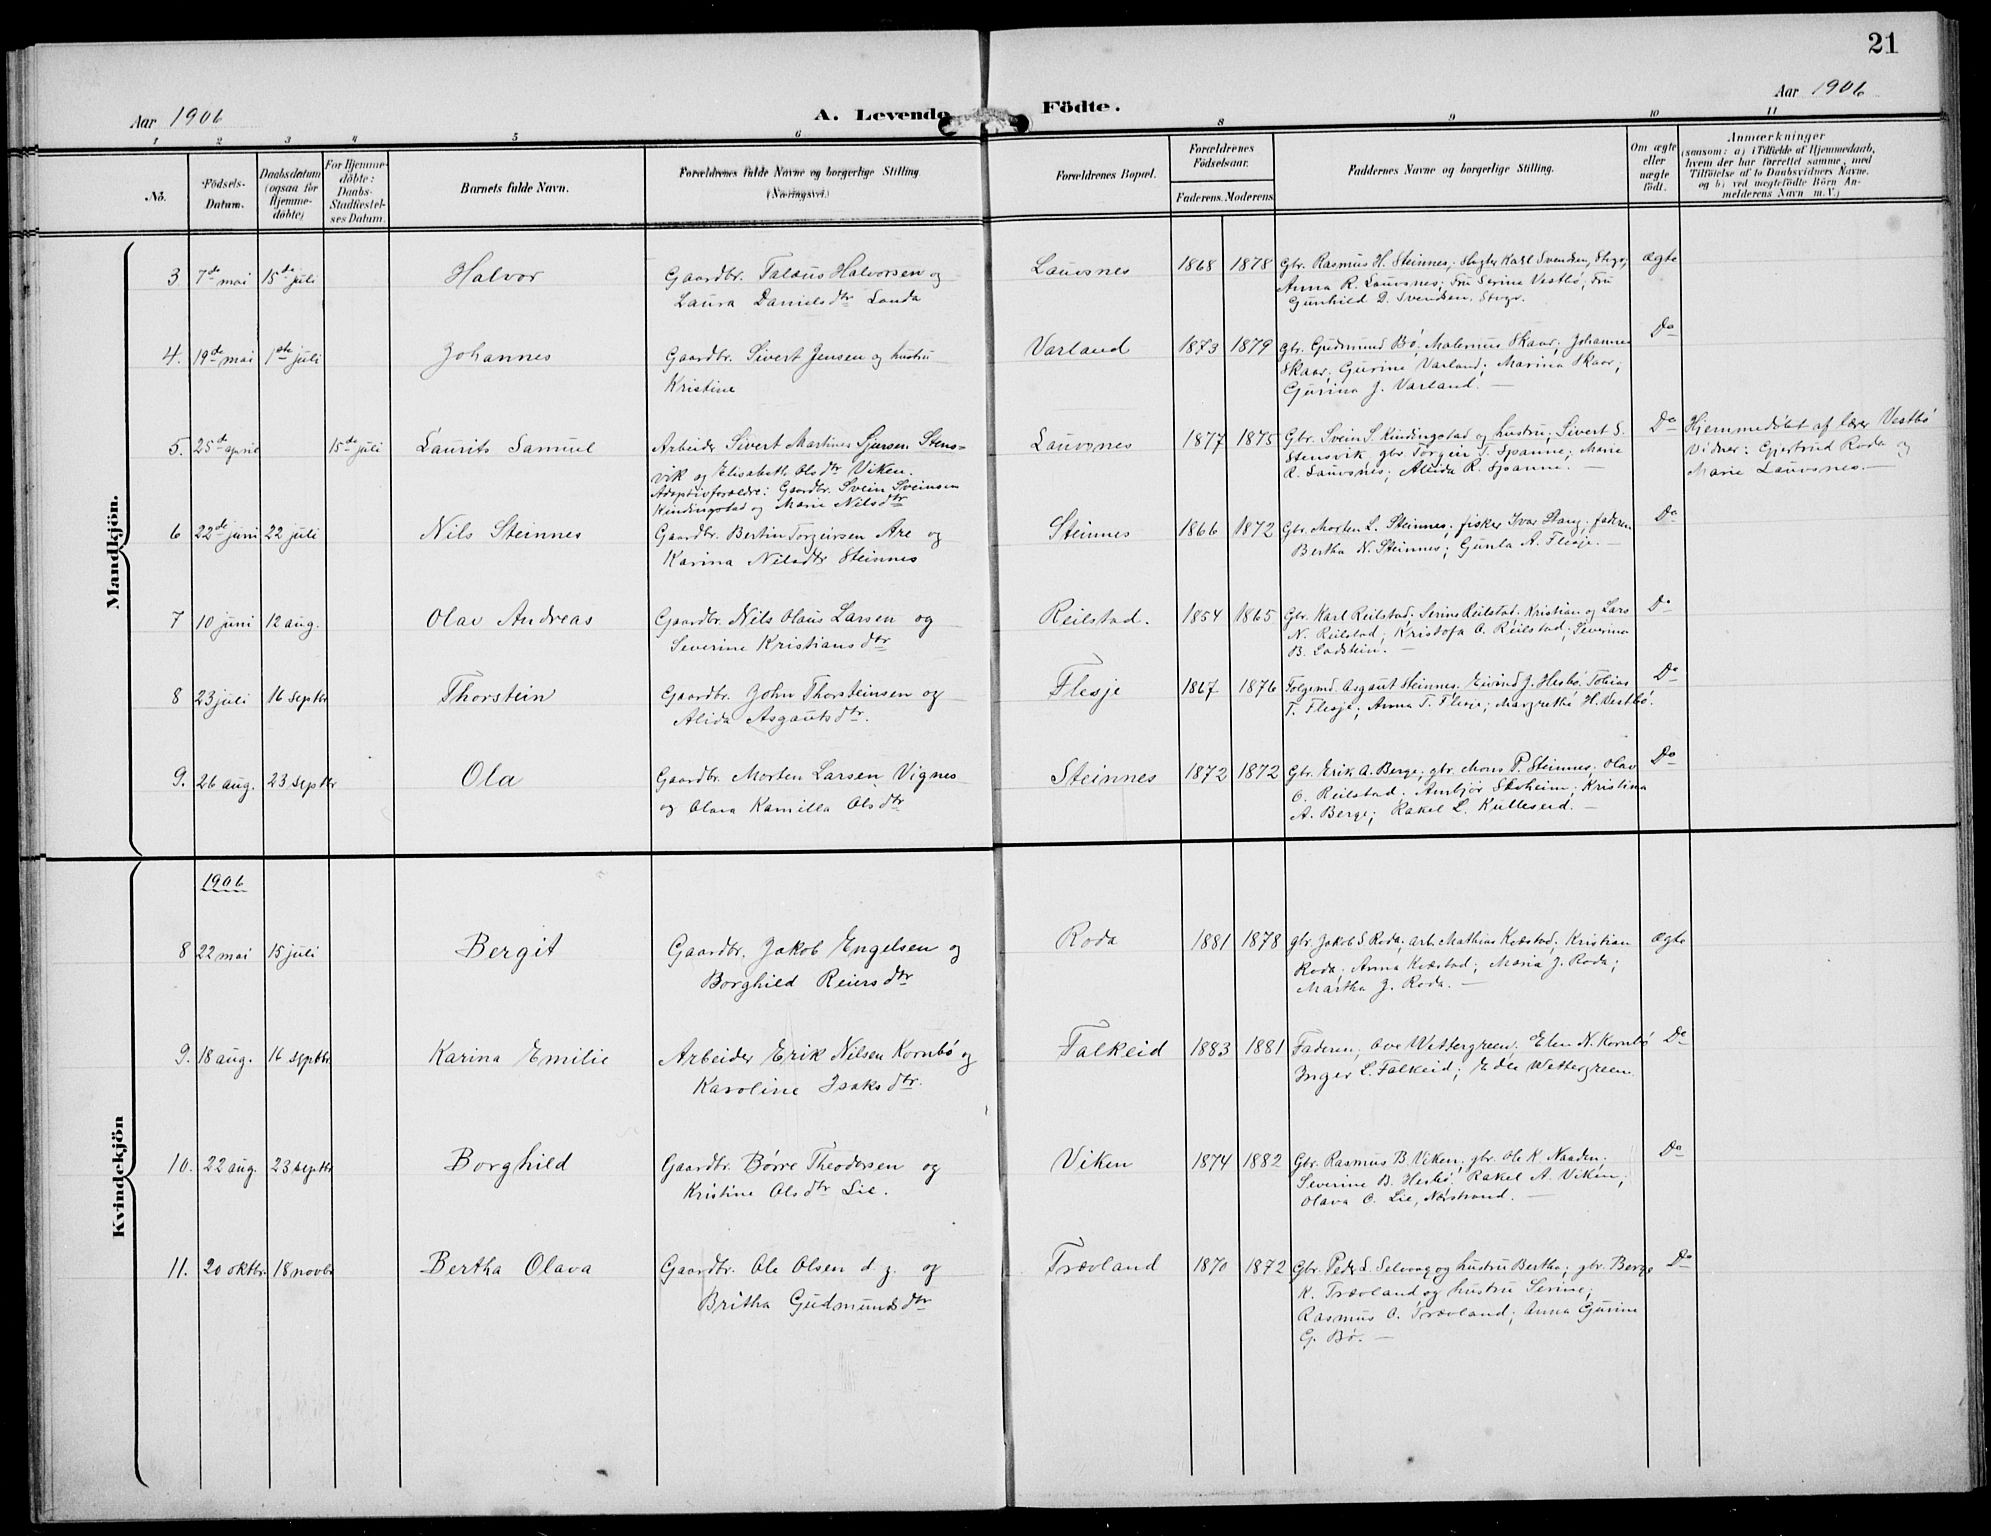 21
Aar 1906
A. Levende Födte.
Aar 1906
1 2 3 4 5 6 8 9 10 11
No.
Födsels-Datum.
Daabsdatum (ogsaa for Hjemme-döbte)
For Hjemme-döbte: Daabs-Stadfæstel-ses Datum.
Barnets fulde Navn.
Forældrenes fulde Navne og borgerlige Stilling (Næringsvei.)
Forældrenes Bopæl.
Forældrenes Födselsaar.
Faderens. Moderens.
Faddernes Navne og borgerlige Stilling.
Om ægte eller uægte födt.
Anmærkninger
(saasom: a) i Tilfælde af Hjemmedaab, hvem der har forrettet samme, med Tilföielse af to Daabsvidners Navne, og b) ved uægtefödte Börn An-melderens Navn m. V.)
Mandkjön.
3 7de mai 15de juli Halvor Gaardbr. Talaus Halvorsen og Lauvsnes 1868 1878 Gbr. Rasmus H. Steinnes; Karl Svendsen, ægte
Laura Danielsdtr Landa
Anna R. Lauvsnes; Fru Serine Vestbö, Fru
Gunhild D. Svendsen.
4. 19de mai 1ste juli Johannes Gaardbr. Sivert Jensen og hustru Varland 1873 1879 Gbr. Gudmund Bø; Malenius Skaar; Johannes Do
Kristine
Skaar; Gurine Varland; Marina Skaar;
Gurina J. Varland. —
5. 25de april 15de juli Laurits Samuel Arbeider Sivert Martines Sjursen Stens- Lauvsnes 1877 1875 Gbr. Svein S. Kindingstad og hustru; Sivert S. Do Hjemmedöbt af lærer Vestbö
vik og Elisabeth Olsdtr Viken.
Stensvik gbr Torgein T. Spanne; Marie
Vidner: Gjertrud Roda og
Adoptivforældre: Gaardbr. Svein Sveinsen
R. Lauvsnes; Alida R. Spanne. —
Marie Lauvsnes. —
Kindingstad og Marie Nilsdtr
6 22de juni 22 juli Nils Steinnes Gaardbr. Bertin Torgeirsen Are og Steinnes 1866 1872 Gbr. Morten L. Steinnes; fisker Ivar Stang; faderen Do
Karina Nilsdtr Steinnes
Bertha N. Steinnes; Gunla A. Flesje. —
7 10 juni 12 aug. Olav Andreas Gaardbr. Nils Olaus Larsen og Reilstad. 1854 1865 Gbr. Karl Reilstad; Serine Reilstad. Kristian og Lars Do
Severine Kristiansdtr
N. Reilstad; Kristofa O. Reilstad; Severina
B. Ladstein. —
8 23 juli 16 septbr Thorstein Gaardbr. John Thorsteinsen og Flesje 1867 1876 Folgemd. Asgaut Steinnes. Eivind J. Hesbö. Tobias Do
Alida Asgautsdtr.
T. Flesje; Anna T. Flesje; Margrethe H. Vestbö.
9. 26 aug. 23 septbr Ola Gaardbr. Morten Larsen Vignes Steinnes 1872 1872 Gbr. Erik A. Berge; gbr. Mons P. Steinnes; Olav Do
og Olava Kamilla Olsdtr
O. Reilstad. Ambjør Sævheim; Kristina
A. Berge; Rakel L. Kulleseid. —
Kvindekjön
1906
8 22 mai 15 juli Bergit Gaardbr. Jakob Engelsen og Roda 1881 1878 gbr. Jakob S Roda; arb. Mathias Kvæstad; Kristian ægte
Borghild Reiersdtr
Roda; Anna Kvæstad; Maria J. Roda;
Martha J. Roda. —
9. 18 aug. 16 septbr Karina Emilie Arbeider Erik Nilsen Kornbö og Falkeid 1883 1881 Faderen; Ove Wettergreen; Elen N. Kornbö Do
Karoline Isaksdtr.
Inger L. Falkeid; Edle Wettergreen.
10. 22 aug. 23 septbr Borghild Gaardbr. Börre Theodorsen og Viken 1874 1882 Gbr. Rasmus B. Viken; gbr. Ole K. Naaden; Do
Kristine Olsdtr Lie.
Severine B. Hesbø. Rakel A. Viken;
Olava O. Lie, Nærstrand. —
11. 20 oktbr. 18 novbr Bertha Olava Gaardbr. Ole Olsen d. y. og Trævland 1870 1872 Gbr. Peder L. Selvaag og hustru Bertha; gbr. Berge Do
Britha Gudmundsdtr
K. Trævland og hustru Serine;
Rasmus O. Trævland; Anna Gurine
G. Bø. —